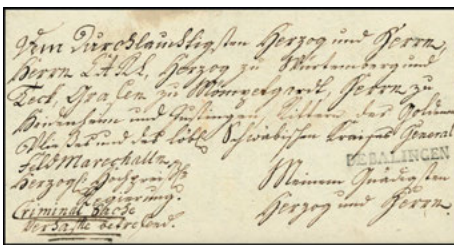 Dem Durchlauchtigsten Herzog und Herrn,
Herrn CARL, Herzog zu Würtemberg und
Teck, Grafen zu Mömpelgardt, Herrn zu
Heidenheim und Justingen, Rittern des Goldenen
Vließes und des löbl. Schwäbischen Kraises General
Feld Marechalln
DE BALINGEN
Herzogl. Hochpreißl.
Regierung.
Criminal Sache
Verhafte betrefend.
Meinem Gnädigsten
Herzog und Herrn.